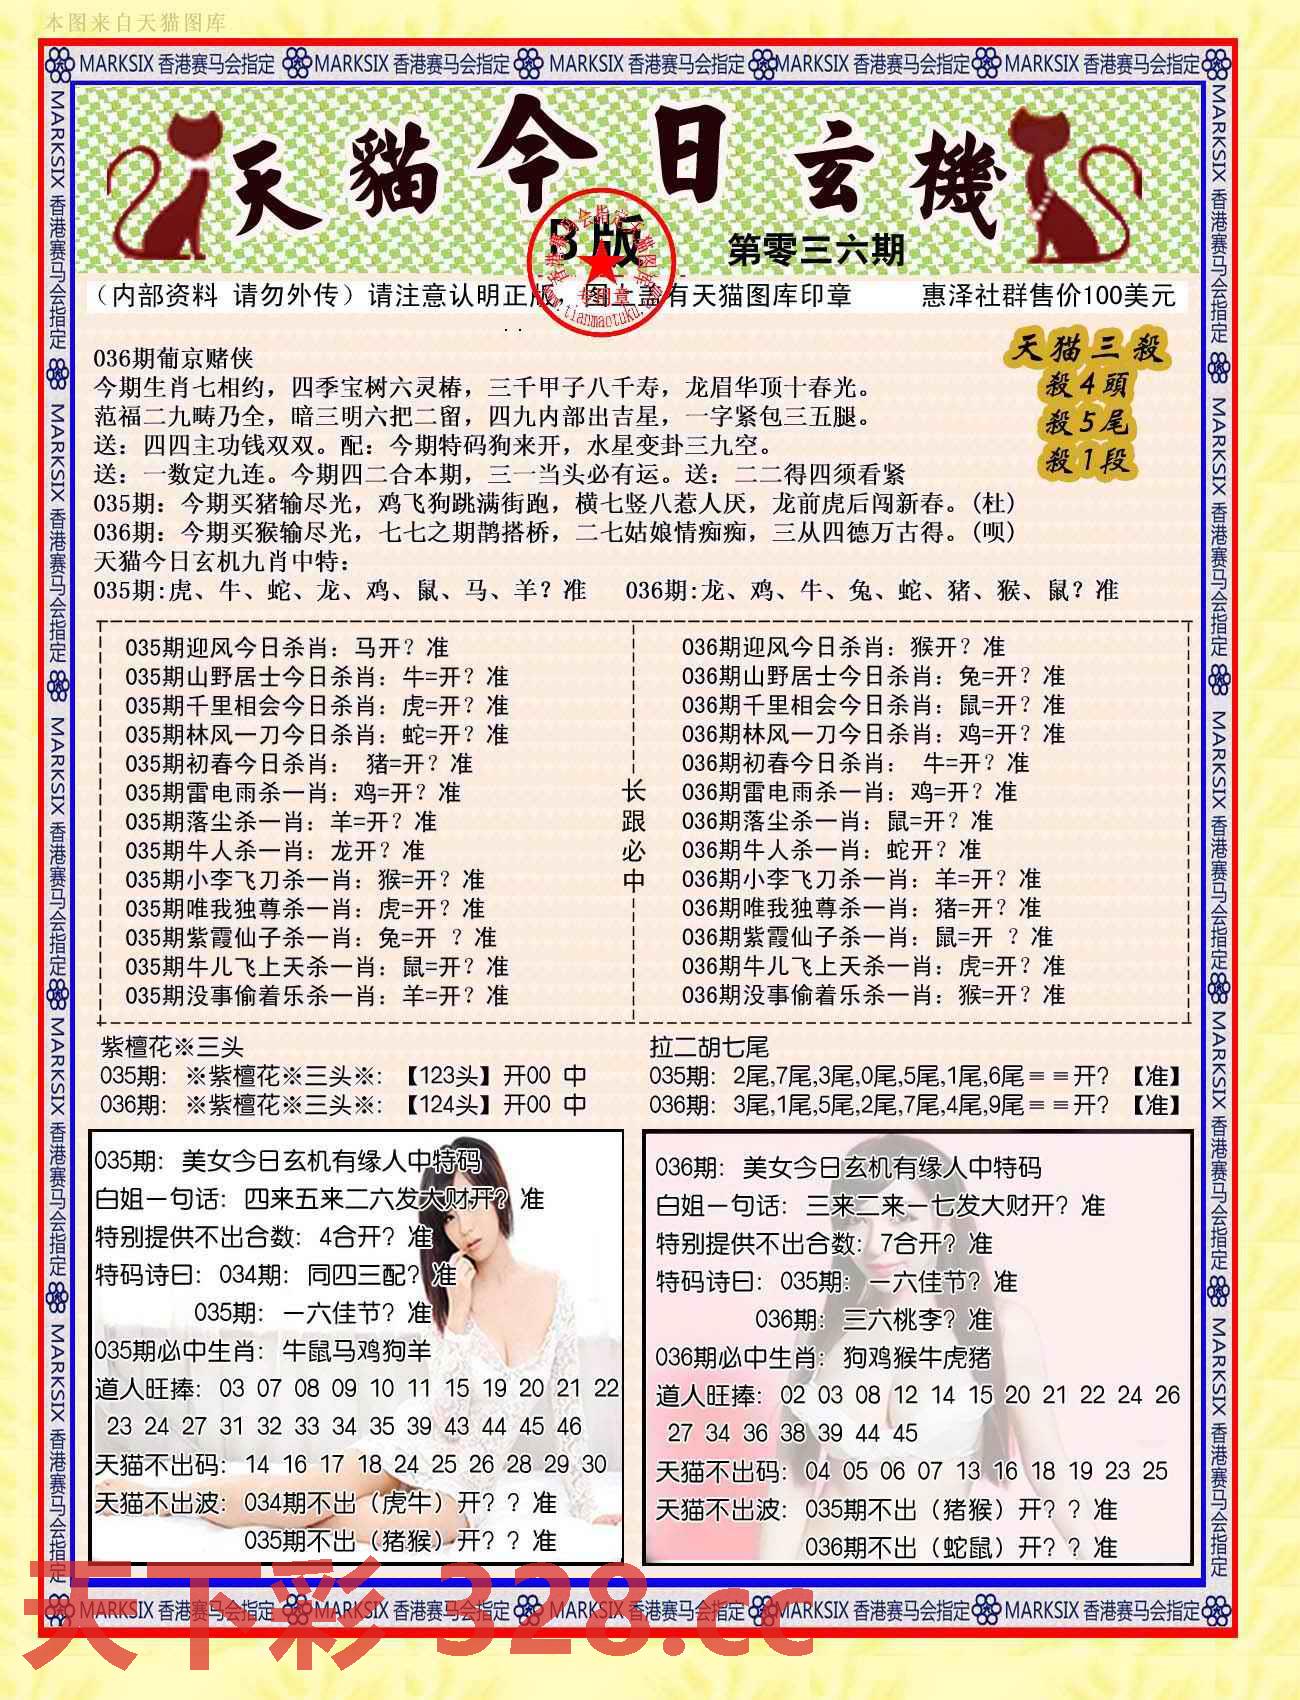 本图来自天猫图库
MARKSIX 香港赛马会指定 MARKSIX 香港赛马会指定 MARKSIX 香港赛马会指定 MARKSIX 香港赛马会指定 MARKSIX 香港赛马会指定
天貓今日玄機
B版
第零三六期
(内部资料 请勿外传) 请注意认明正版, 图上盖有天猫图库印章 惠泽社群售价100美元
专用章
www.tianmaotuku.com
036期葡京赌侠
今期生肖七相约,四季宝树六灵椿,三千甲子八千寿,龙眉华顶十春光。
范福二九畴乃全,暗三明六把二留,四九内部出吉星,一字紧包三五腿。
送:四四主功钱双双。配:今期特码狗来开,水星变卦三九空。
送:一数定九连。今期四二合本期,三一当头必有运。送:二二得四须看紧
天猫三殺
殺4頭
殺5尾
殺1段
035期:今期买猪输尽光,鸡飞狗跳满街跑,横七竖八惹人厌,龙前虎后闯新春。(杜)
036期:今期买猴输尽光,七七之期鹊搭桥,二七姑娘情痴痴,三从四德万古得。(呗)
天猫今日玄机九肖中特:
035期:虎、牛、蛇、龙、鸡、鼠、马、羊?准 036期:龙、鸡、牛、兔、蛇、猪、猴、鼠?准
035期迎风今日杀肖:马开?准
035期山野居士今日杀肖:牛=开?准
035期千里相会今日杀肖:虎=开?准
035期林风一刀今日杀肖:蛇=开?准
035期初春今日杀肖: 猪=开?准
035期雷电雨杀一肖:鸡=开?准
035期落尘杀一肖:羊=开?准
035期牛人杀一肖:龙开?准
035期小李飞刀杀一肖:猴=开?准
035期唯我独尊杀一肖:虎=开?准
035期紫霞仙子杀一肖:兔=开 ?准
035期牛儿飞上天杀一肖:鼠=开?准
035期没事偷着乐杀一肖:羊=开?准
长
跟
必
中
036期迎风今日杀肖:猴开?准
036期山野居士今日杀肖:兔=开?准
036期千里相会今日杀肖:鼠=开?准
036期林风一刀今日杀肖:鸡=开?准
036期初春今日杀肖: 牛=开?准
036期雷电雨杀一肖:鸡=开?准
036期落尘杀一肖:鼠=开?准
036期牛人杀一肖:蛇开?准
036期小李飞刀杀一肖:羊=开?准
036期唯我独尊杀一肖:猪=开?准
036期紫霞仙子杀一肖:鼠=开 ?准
036期牛儿飞上天杀一肖:虎=开?准
036期没事偷着乐杀一肖:猴=开?准
紫檀花※三头
035期: ※紫檀花※三头※: 【123头】开00 中
036期: ※紫檀花※三头※: 【124头】开00 中
拉二胡七尾
035期: 2尾,7尾,3尾,0尾,5尾,1尾,6尾≡≡开? 【准】
036期: 3尾,1尾,5尾,2尾,7尾,4尾,9尾≡≡开? 【准】
035期: 美女今日玄机有缘人中特码
白姐一句话: 四来五来二六发大财开? 准
特别提供不出合数: 4合开? 准
特码诗曰: 034期: 同四三配? 准
035期: 一六佳节? 准
035期必中生肖: 牛鼠马鸡狗羊
道人旺捧: 03 07 08 09 10 11 15 19 20 21 22
23 24 27 31 32 33 34 35 39 43 44 45 46
天猫不出码: 14 16 17 18 24 25 26 28 29 30
天猫不出波: 034期不出(虎牛)开? ? 准
035期不出(猪猴)开? ? 准
036期: 美女今日玄机有缘人中特码
白姐一句话: 三来二来一七发大财开? 准
特别提供不出合数: 7合开? 准
特码诗曰: 035期: 一六佳节? 准
036期: 三六桃李? 准
036期必中生肖: 狗鸡猴牛虎猪
道人旺捧: 02 03 08 12 14 15 20 21 22 24 26
27 34 36 38 39 44 45
天猫不出码: 04 05 06 07 13 16 18 19 23 25
天猫不出波: 035期不出(猪猴)开? ? 准
036期不出(蛇鼠)开? ? 准
MARKSIX 香港赛马会指定 MARKSIX 香港赛马会指定 MARKSIX 香港赛马会指定 MARKSIX 香港赛马会指定
MARKSIX 香港赛马会指定 MARKSIX 香港赛马会指定 MARKSIX 香港赛马会指定 MARKSIX 香港赛马会指定 MARKSIX 香港赛马会指定
MARKSIX 香港赛马会指定 MARKSIX 香港赛马会指定 MARKSIX 香港赛马会指定 MARKSIX 香港赛马会指定 MARKSIX 香港赛马会指定
MARKSIX 香港赛马会指定
天下彩 328.cc